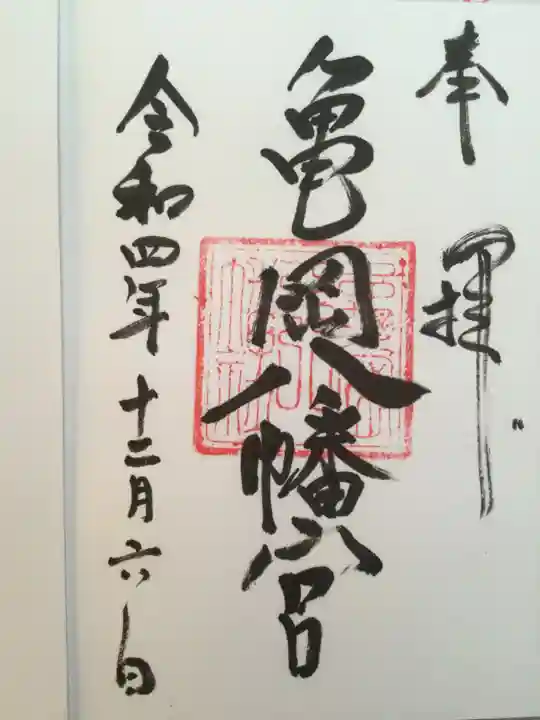 奉拝
亀岡八幡宮
令和四年十二月六日